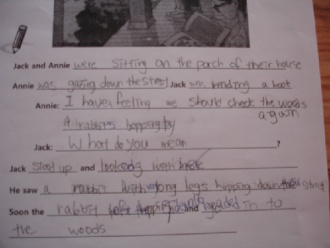 Jack and Annie were sitting on the porch of their house
Annie was gazing down the street Jack was reading a book
Annie: I have a feeling we should check the woods
again
A rabbit's hopping by
Jack: What do you mean ?
Jack stood up and looked
He saw a rabbit with long legs hopping down their street
Soon the rabbit headed in to
the woods